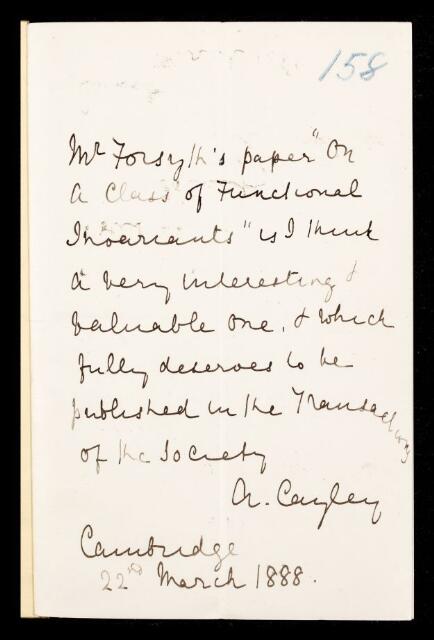 158
Mr Forsyth's paper "On
a Class of Functional
Invariants" is I think
a very interesting &
valuable one, & which
fully deserves to be
published in the Transactions
of the Society
A. Cayley
Cambridge
22nd March 1888.